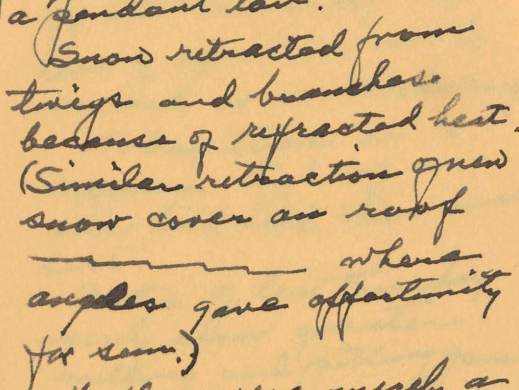 a pendant
Snow retracted from
twigs and branches
because of refracted heat.
(Similar retraction of new
snow cover on roof
where
angles gave opportunity
for same.)
a